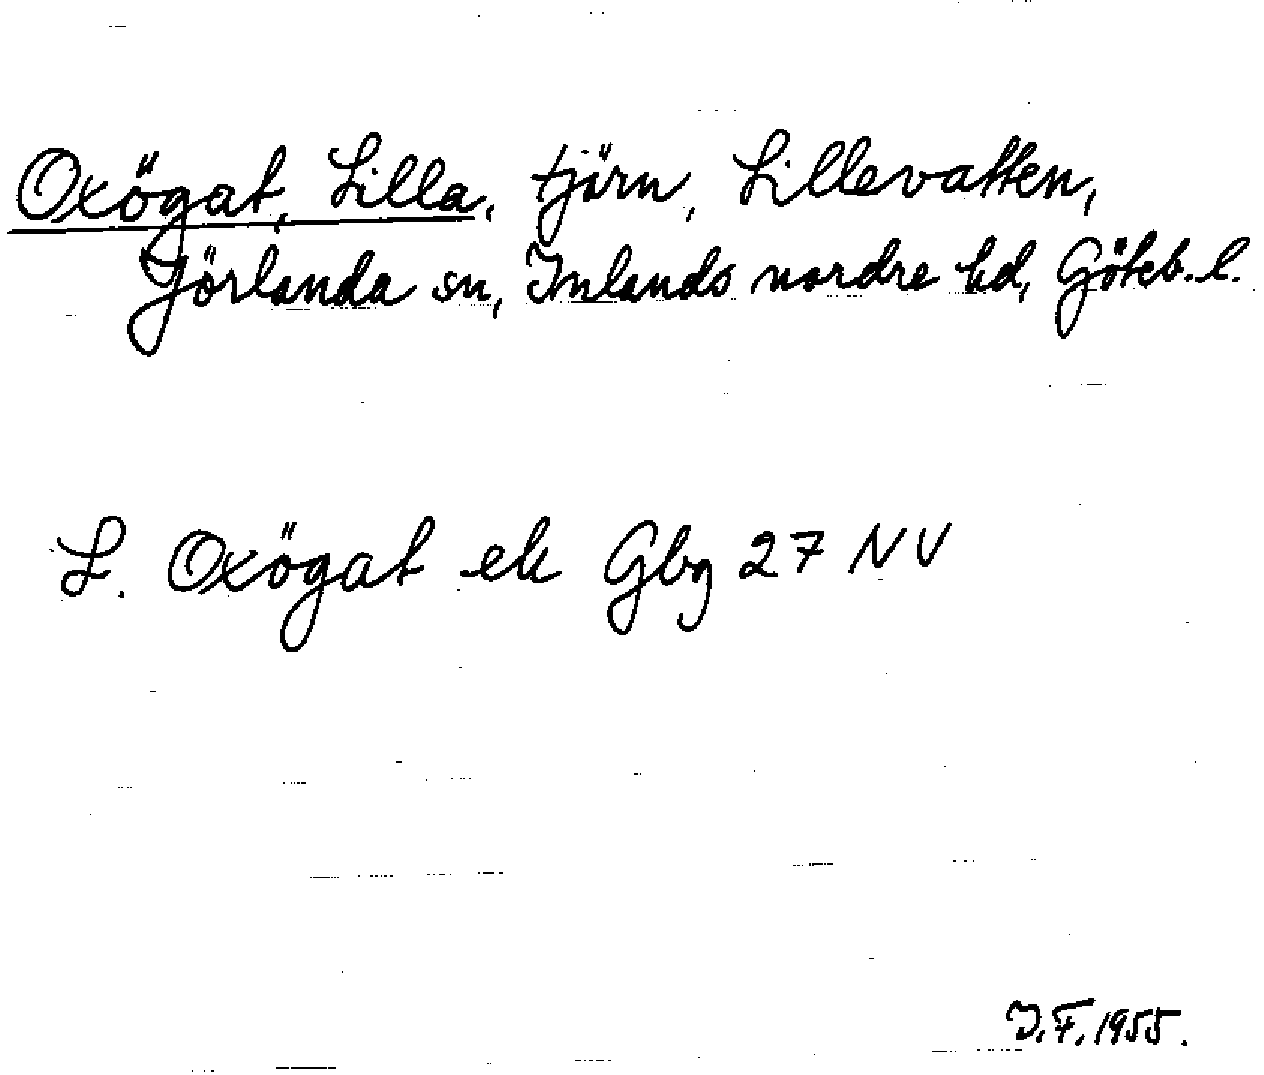 Oxögat, Lilla, tjörn, Lillevatten,
Jörlanda sn, Inlands nordre hd, Göteb. l.
L. Oxögat ek Gbg 27 NV
I.F. 1955.